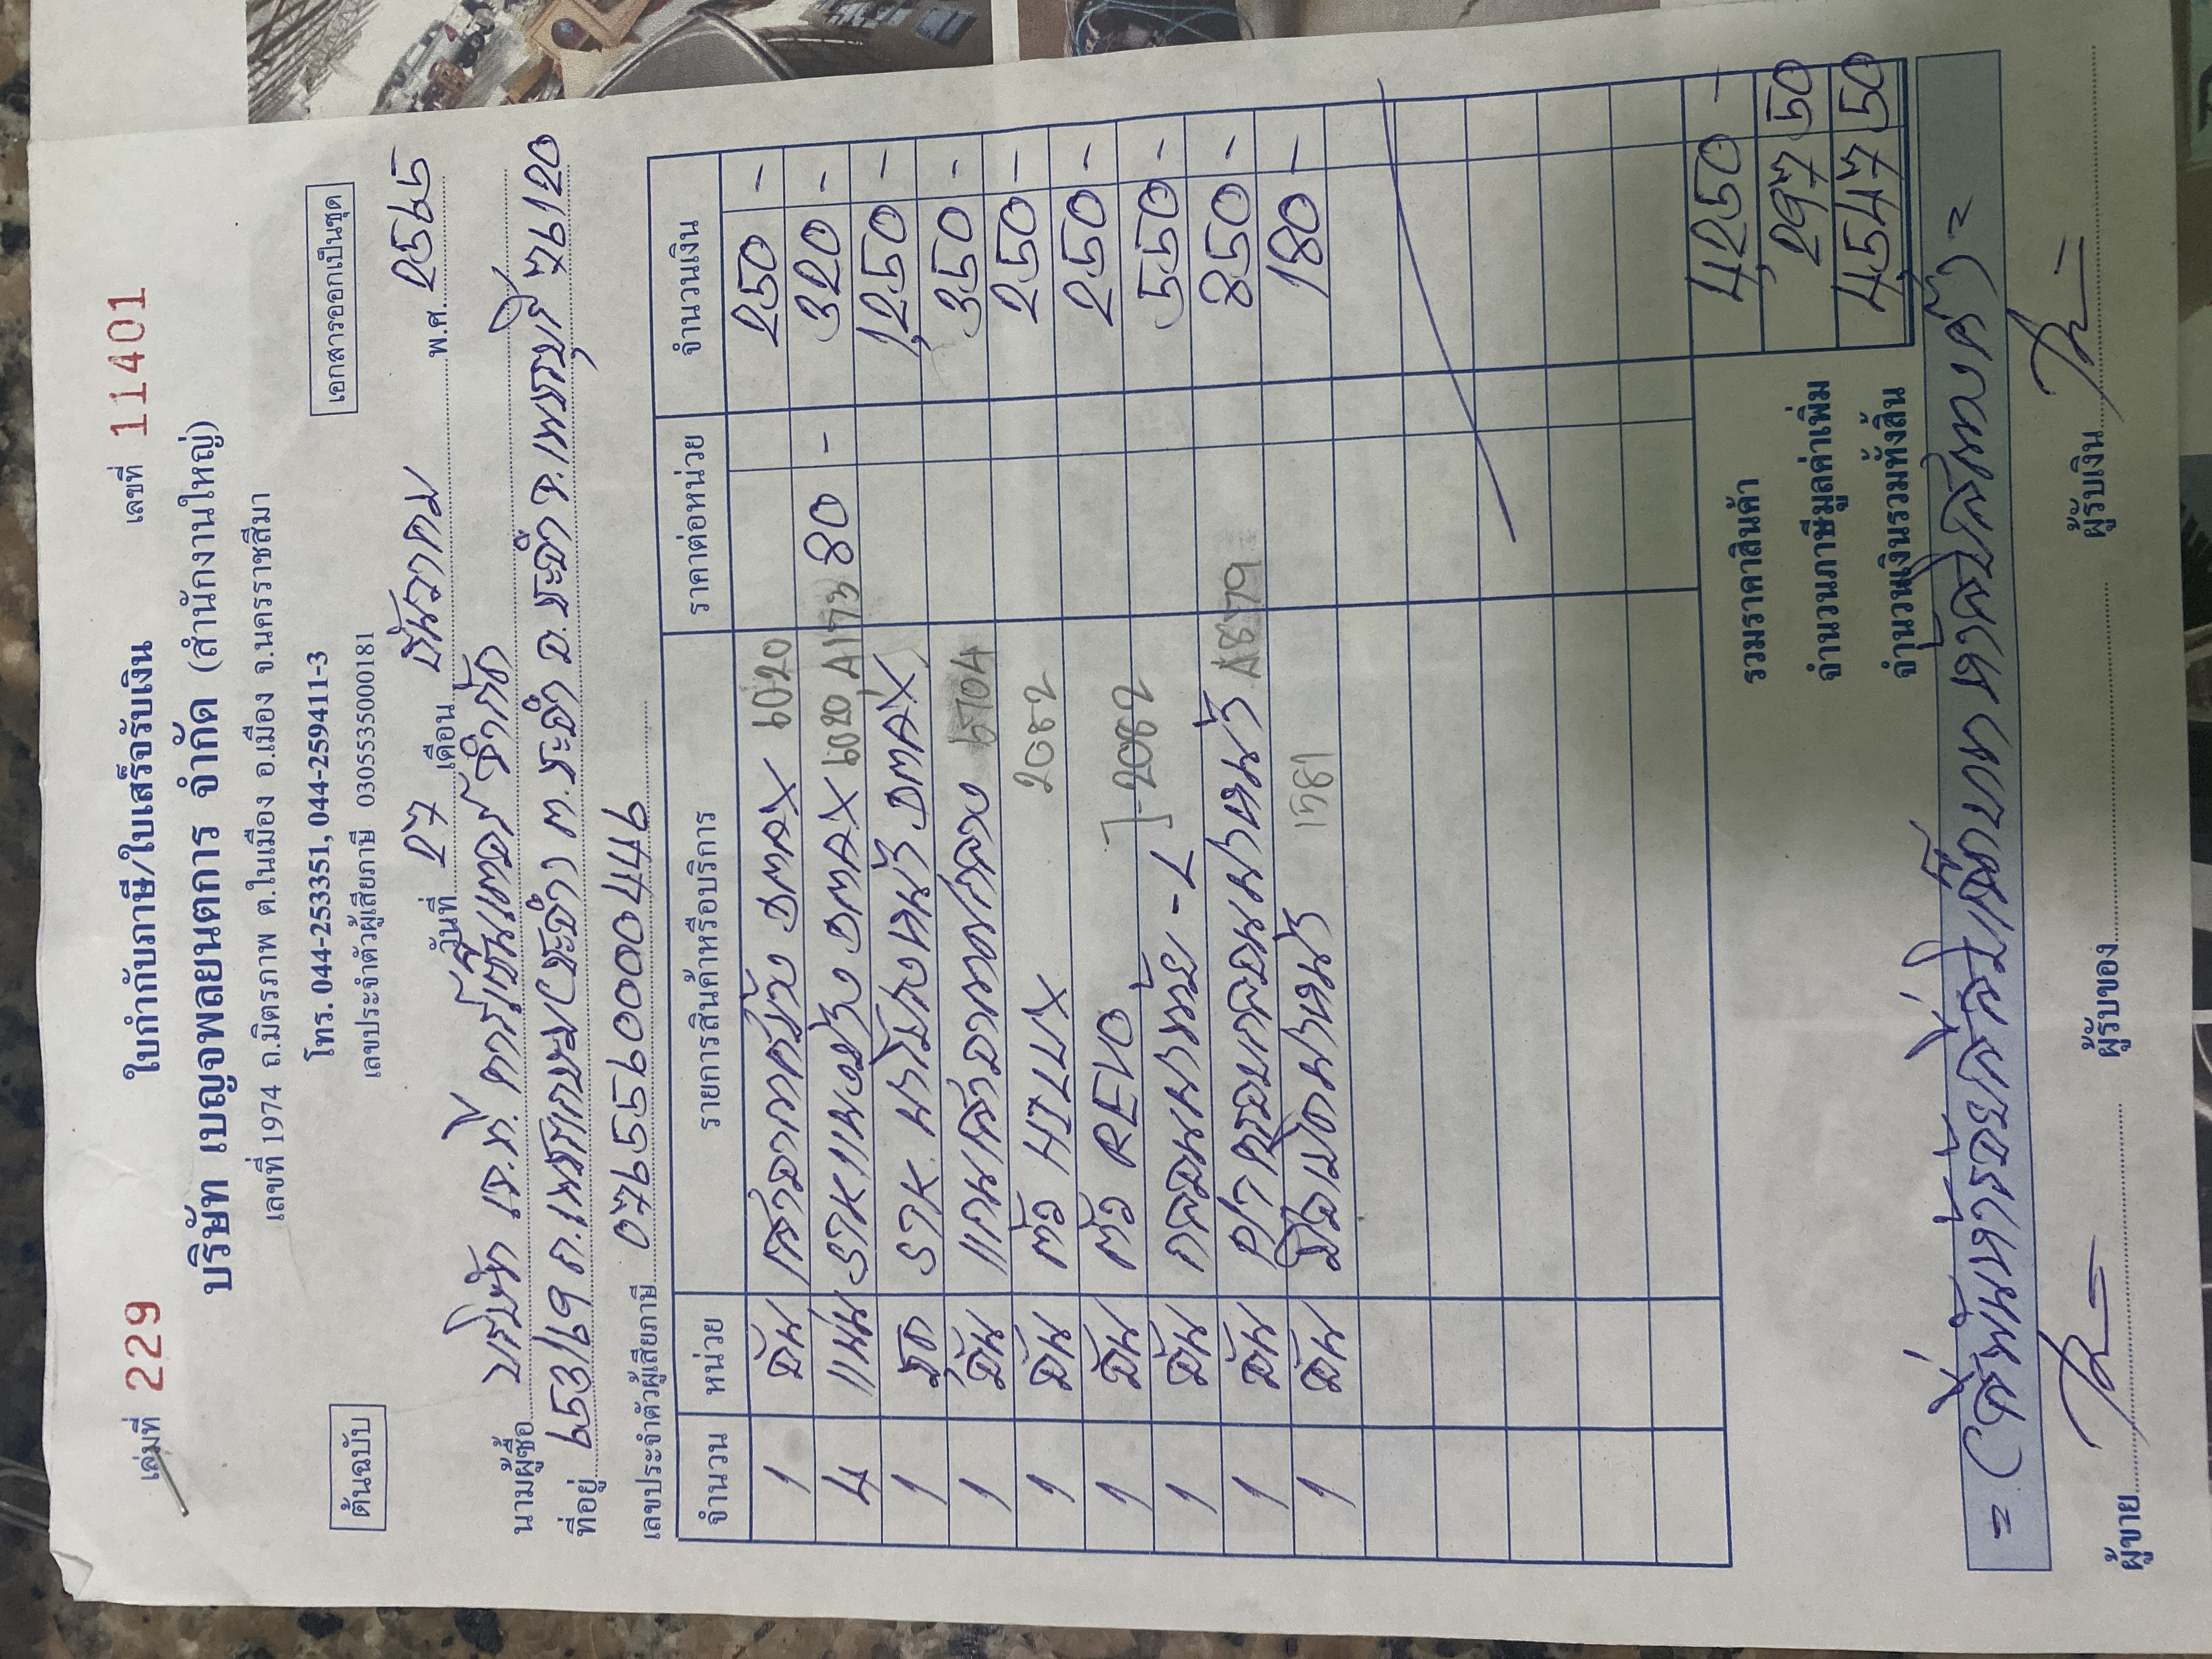 เล่มที่ 229 ใบกำกับภาษี/ใบเสร็จรับเงิน เลขที่ 11401
บริษัท เบญจพลยนตการ จำกัด (สำนักงานใหญ่)
เลขที่ 1974 ถ.มิตรภาพ ต.ในเมือง อ.เมือง จ.นครราชสีมา
โทร. 044-253351, 044-259411-3
ต้นฉบับ เลขประจำตัวผู้เสียภาษี 0305535000181 เอกสารออกเป็นชุด
วันที่ 27 เดือน ธันวาคม พ.ศ. 2565
นามผู้ซื้อ บริษัท เจ.ที. คาร์เซ็นเตอร์ จำกัด
ที่อยู่ 653/19 ถ.เพชรเกษม (ชะอำ) ต.ชะอำ อ.ชะอำ จ.เพชรบุรี 76120
เลขประจำตัวผู้เสียภาษี 0765560000449
จำนวน หน่วย รายการสินค้าหรือบริการ ราคาต่อหน่วย จำนวนเงิน
1 อัน DMAX 6020 250 -
4 แผ่น DMAX 6020 A1773 80 - 320 -
1 ชุด หน้า DMAX 1,250 -
1 อัน 6704 350 -
1 อัน ตัว HILUX 2082 250 -
1 อัน ตัว REVO 250 -
1 อัน ]-2082 550 -
1 อัน A8579 850 -
1 อัน 1781 180 -
รวมราคาสินค้า 4,250 -
จำนวนภาษีมูลค่าเพิ่ม 297 50
จำนวนเงินรวมทั้งสิ้น 4,547 50
= (สี่พันห้าร้อยสี่สิบเจ็ดบาทห้าสิบสตางค์) =
ผู้ขาย ผู้รับของ ผู้รับเงิน